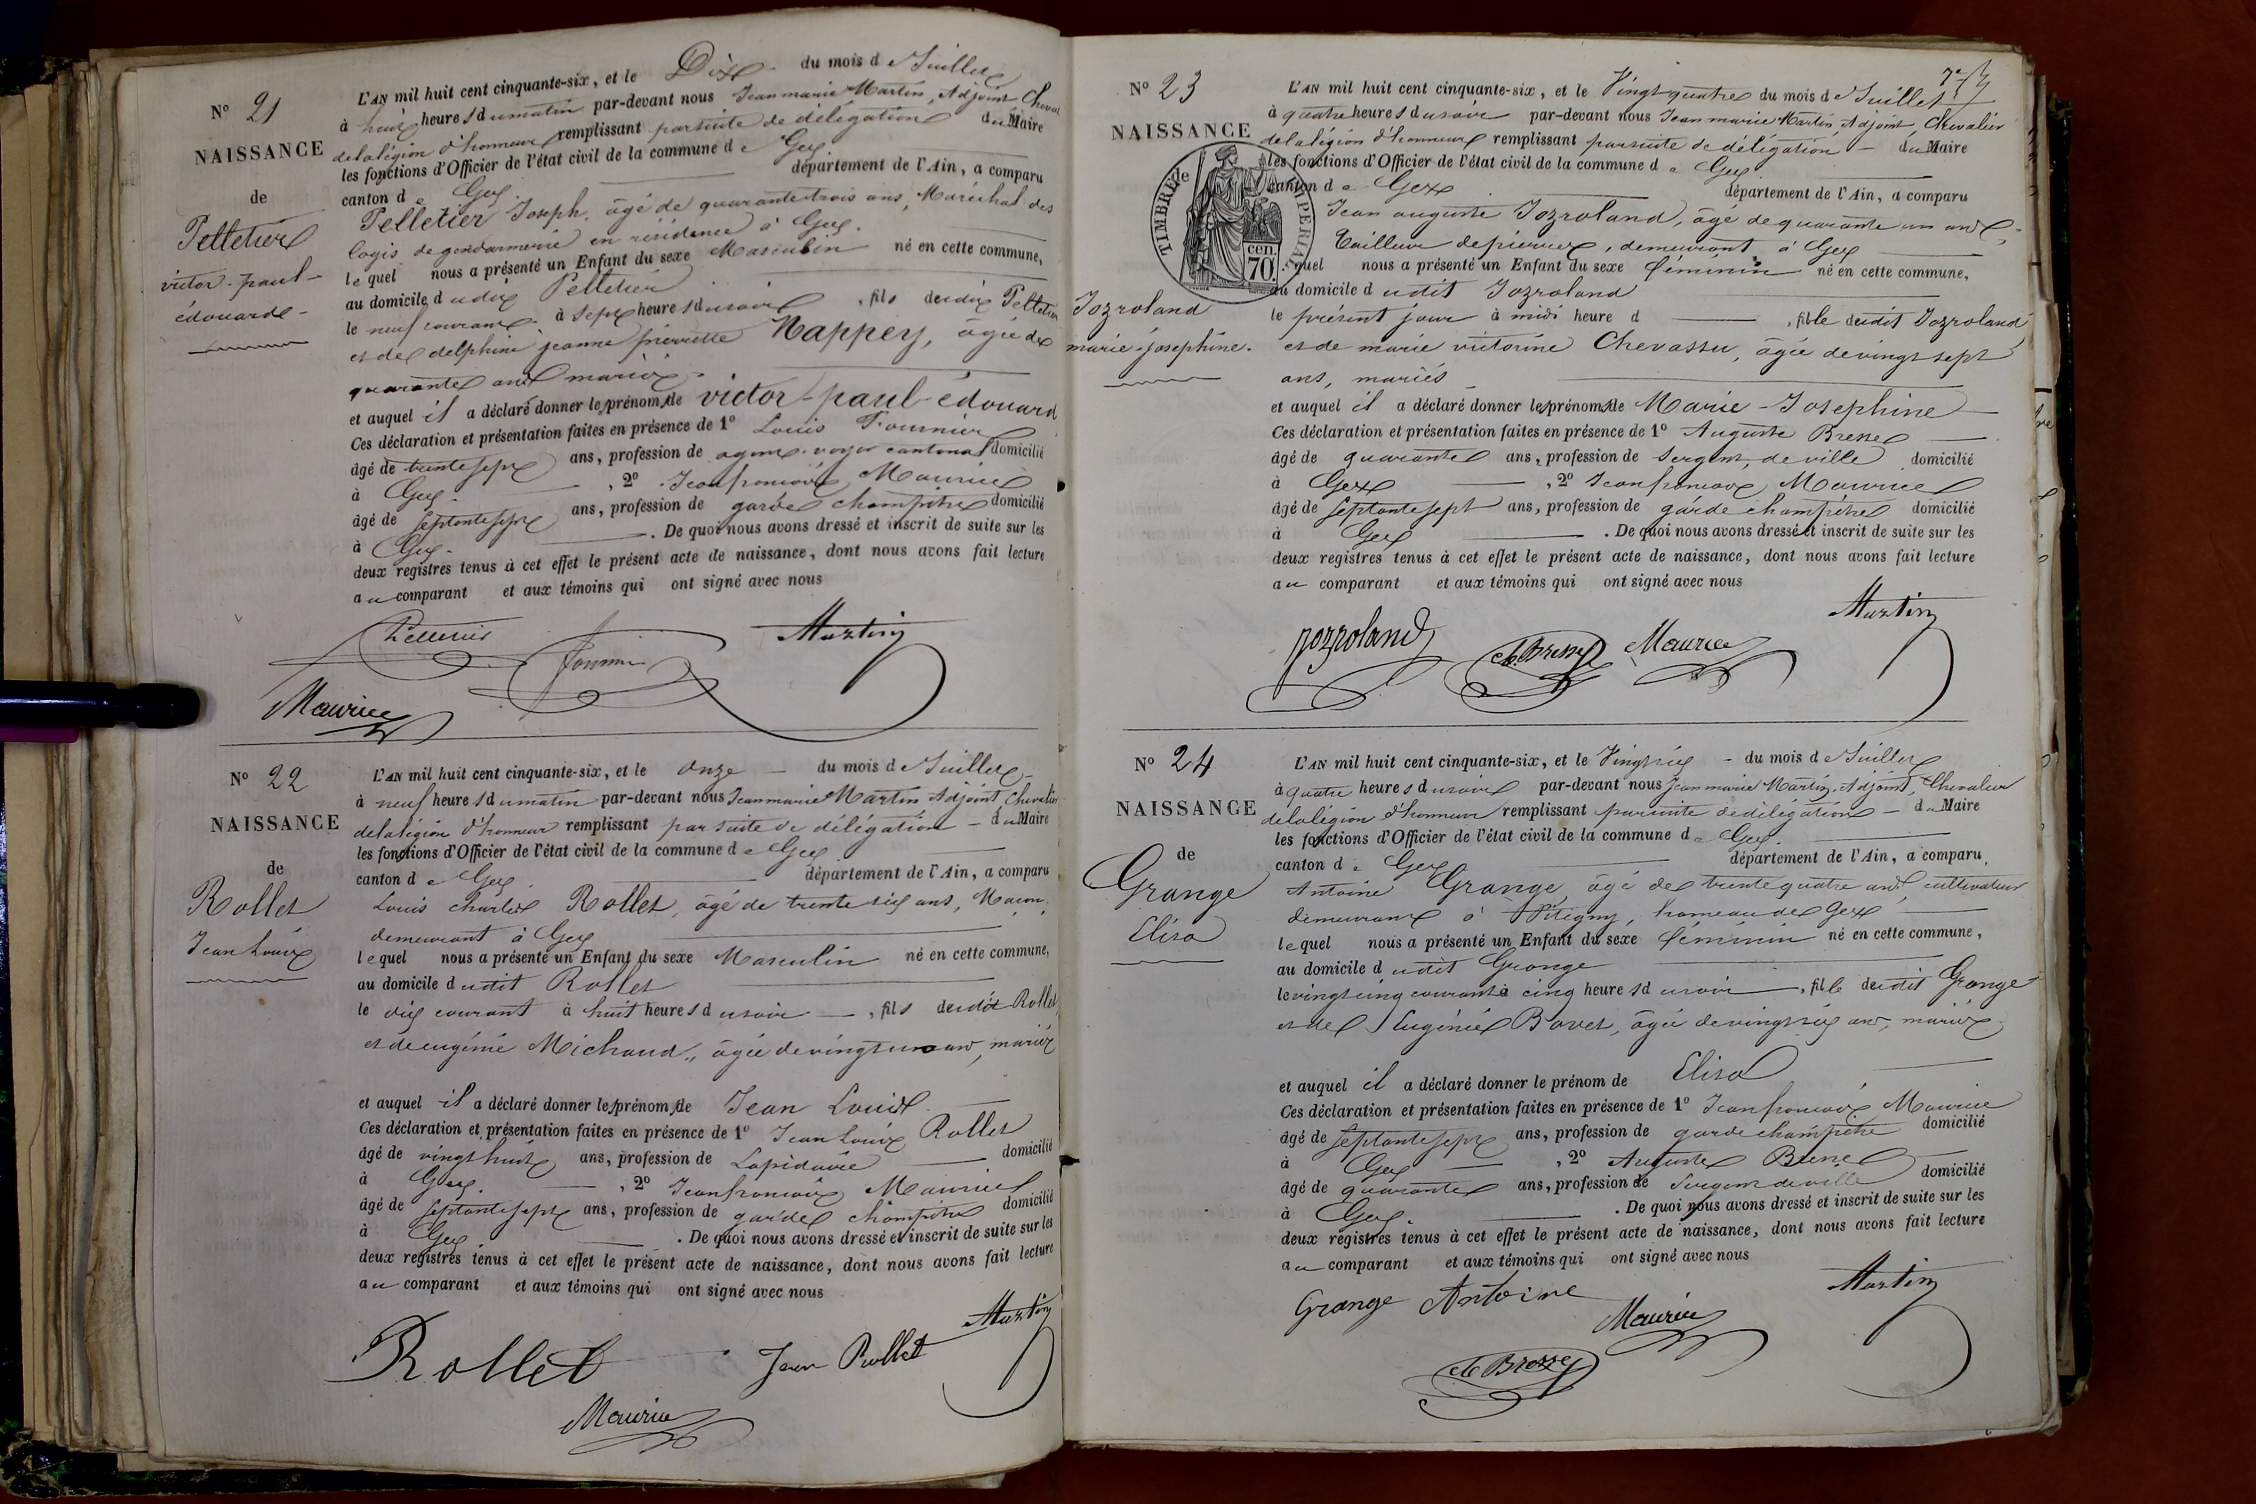 N° 21
NAISSANCE
de
Pelletier
victor-paul-
édouard-
L'AN mil huit cent cinquante-six, et le Dix du mois de Juillet
à heures du matin par-devant nous Jean marie Martin, Adjoint Cheval
de la légion d'honneur remplissant par suite de délégation du Maire
les fonctions d'Officier de l'état civil de la commune de Gex.
canton de Gex. département de l'Ain, a comparu
Pelletier Joseph, âgé de quarante trois ans, Maréchal des
logis de gendarmerie en résidence à Gex.
lequel nous a présenté un Enfant du sexe Masculin né en cette commune,
au domicile dudit Pelletier
le neuf courant à sept heures du soir, fils dudit Pelletier
et de delphine jeanne pierrette Nappey, âgée de
quarante ans mariés.
et auquel il a déclaré donner les prénoms de victor-paul-édouard
Ces déclaration et présentation faites en présence de 1° Louis Fournier
âgé de trente sept ans, profession de agent-voyer cantonal domicilié
à Gex. , 2° Jean françois Maurice
âgé de septante sept ans, profession de garde champêtre domicilié
à Gex. . De quoi nous avons dressé et inscrit de suite sur les
deux registres tenus à cet effet le présent acte de naissance, dont nous avons fait lecture
au comparant et aux témoins qui ont signé avec nous
Pelletier Fournier Martin
Maurice
N° 22
NAISSANCE
de
Rollet
Jean Louis
L'AN mil huit cent cinquante-six, et le onze du mois de Juillet
à neuf heures du matin par-devant nous Jean marie Martin Adjoint, Chevalier
de la légion d'honneur remplissant par suite de délégation du Maire
les fonctions d'Officier de l'état civil de la commune de Gex
canton de Gex. département de l'Ain, a comparu
Louis charles Rollet, âgé de trente six ans, Maçon,
demeurant à Gex
lequel nous a présenté un Enfant du sexe Masculin né en cette commune,
au domicile dudit Rollet
le dix courant à huit heures du soir, fils dudit Rollet
et de eugénie Michaud, âgée de vingt un ans, mariés
et auquel il a déclaré donner les prénoms de Jean Louis
Ces déclaration et présentation faites en présence de 1° Jean Louis Rollet
âgé de vingt huit ans, profession de Lapidaire domicilié
à Gex. , 2° Jean françois Maurice
âgé de septante sept ans, profession de garde champêtre domicilié
à Gex . De quoi nous avons dressé et inscrit de suite sur les
deux registres tenus à cet effet le présent acte de naissance, dont nous avons fait lecture
au comparant et aux témoins qui ont signé avec nous
Rollet Jean Rollet Martin
Maurice
N° 23
NAISSANCE
de
TIMBRE IMPERIAL
cen.
70.
Jozroland
marie-josephine.
L'AN mil huit cent cinquante-six, et le Vingt quatre du mois de Juillet
à quatre heures du soir par-devant nous Jean marie Martin, Adjoint, Chevalier
de la légion d'honneur remplissant par suite de délégation du Maire
les fonctions d'Officier de l'état civil de la commune de Gex
canton de Gex département de l'Ain, a comparu
Jean auguste Jozroland, âgé de quarante un ans,
Tailleur de pierres, demeurant à Gex
lequel nous a présenté un Enfant du sexe féminin né en cette commune,
au domicile dudit Jozroland
le présent jour à midi heure d , fille dudit Jozroland
et de marie victorine Chevassu, âgée de vingt sept
ans, mariés
et auquel il a déclaré donner les prénoms de Marie-Josephine
Ces déclaration et présentation faites en présence de 1° Auguste Bresse
âgé de quarante ans, profession de Sergent de ville domicilié
à Gex , 2° Jean françois Maurice
âgé de septante sept ans, profession de garde champêtre domicilié
à Gex . De quoi nous avons dressé et inscrit de suite sur les
deux registres tenus à cet effet le présent acte de naissance, dont nous avons fait lecture
au comparant et aux témoins qui ont signé avec nous
Jozroland Bresse Maurice Martin
N° 24
NAISSANCE
de
Grange
Elisa
L'AN mil huit cent cinquante-six, et le Vingt six du mois de Juillet
à quatre heures du soir par-devant nous Jean marie Martin, Adjoint, Chevalier
de la légion d'honneur remplissant par suite de délégation du Maire
les fonctions d'Officier de l'état civil de la commune de Gex.
canton de Gex département de l'Ain, a comparu
Antoine Grange, âgé de trente quatre ans, cultivateur
demeurant à Pitegny, hameau de Gex
lequel nous a présenté un Enfant du sexe féminin né en cette commune,
au domicile dudit Grange
le vingt cinq courant à cinq heures du soir, fille dudit Grange
et de Eugénie Bovet, âgée de vingt six ans, mariés
et auquel il a déclaré donner le prénom de Elisa
Ces déclaration et présentation faites en présence de 1° Jean françois Maurice
âgé de septante sept ans, profession de garde champêtre domicilié
à Gex , 2° Auguste Bresse
âgé de quarante ans, profession de Sergent de ville domicilié
à Gex. . De quoi nous avons dressé et inscrit de suite sur les
deux registres tenus à cet effet le présent acte de naissance, dont nous avons fait lecture
au comparant et aux témoins qui ont signé avec nous
Grange Antoine Maurice Martin
Bresse